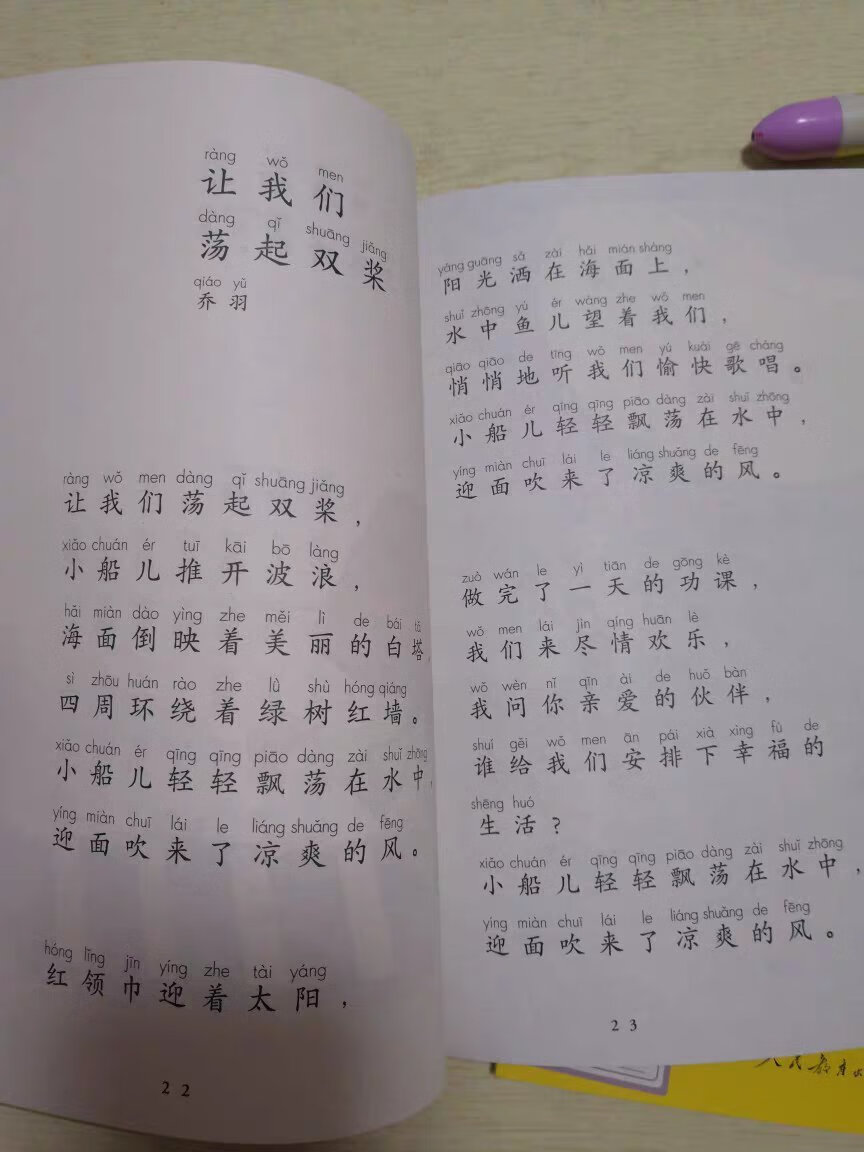 ràng wǒ men
让我们
dàng qǐ shuāng jiǎng
荡起双桨
qiáo yǔ
乔羽
ràng wǒ men dàng qǐ shuāng jiǎng
让我们荡起双桨，
xiǎo chuán ér tuī kāi bō làng
小船儿推开波浪，
hǎi miàn dào yìng zhe měi lì de bái tǎ
海面倒映着美丽的白塔，
sì zhōu huán rào zhe lǜ shù hóng qiáng
四周环绕着绿树红墙。
xiǎo chuán ér qīng qīng piāo dàng zài shuǐ zhōng
小船儿轻轻飘荡在水中，
yíng miàn chuī lái le liáng shuǎng de fēng
迎面吹来了凉爽的风。
hóng lǐng jīn yíng zhe tài yáng
红领巾迎着太阳，
22
yáng guāng sǎ zài hǎi miàn shàng
阳光洒在海面上，
shuǐ zhōng yú ér wàng zhe wǒ men
水中鱼儿望着我们，
qiāo qiāo de tīng wǒ men yú kuài gē chàng
悄悄地听我们愉快歌唱。
xiǎo chuán ér qīng qīng piāo dàng zài shuǐ zhōng
小船儿轻轻飘荡在水中，
yíng miàn chuī lái le liáng shuǎng de fēng
迎面吹来了凉爽的风。
zuò wán le yì tiān de gōng kè
做完了一天的功课，
wǒ men lái jìn qíng huān lè
我们来尽情欢乐，
wǒ wèn nǐ qīn ài de huǒ bàn
我问你亲爱的伙伴，
shuí gěi wǒ men ān pái xià xìng fú de
谁给我们安排下幸福的
shēng huó
生活？
xiǎo chuán ér qīng qīng piāo dàng zài shuǐ zhōng
小船儿轻轻飘荡在水中，
yíng miàn chuī lái le liáng shuǎng de fēng
迎面吹来了凉爽的风。
23
人民教育出